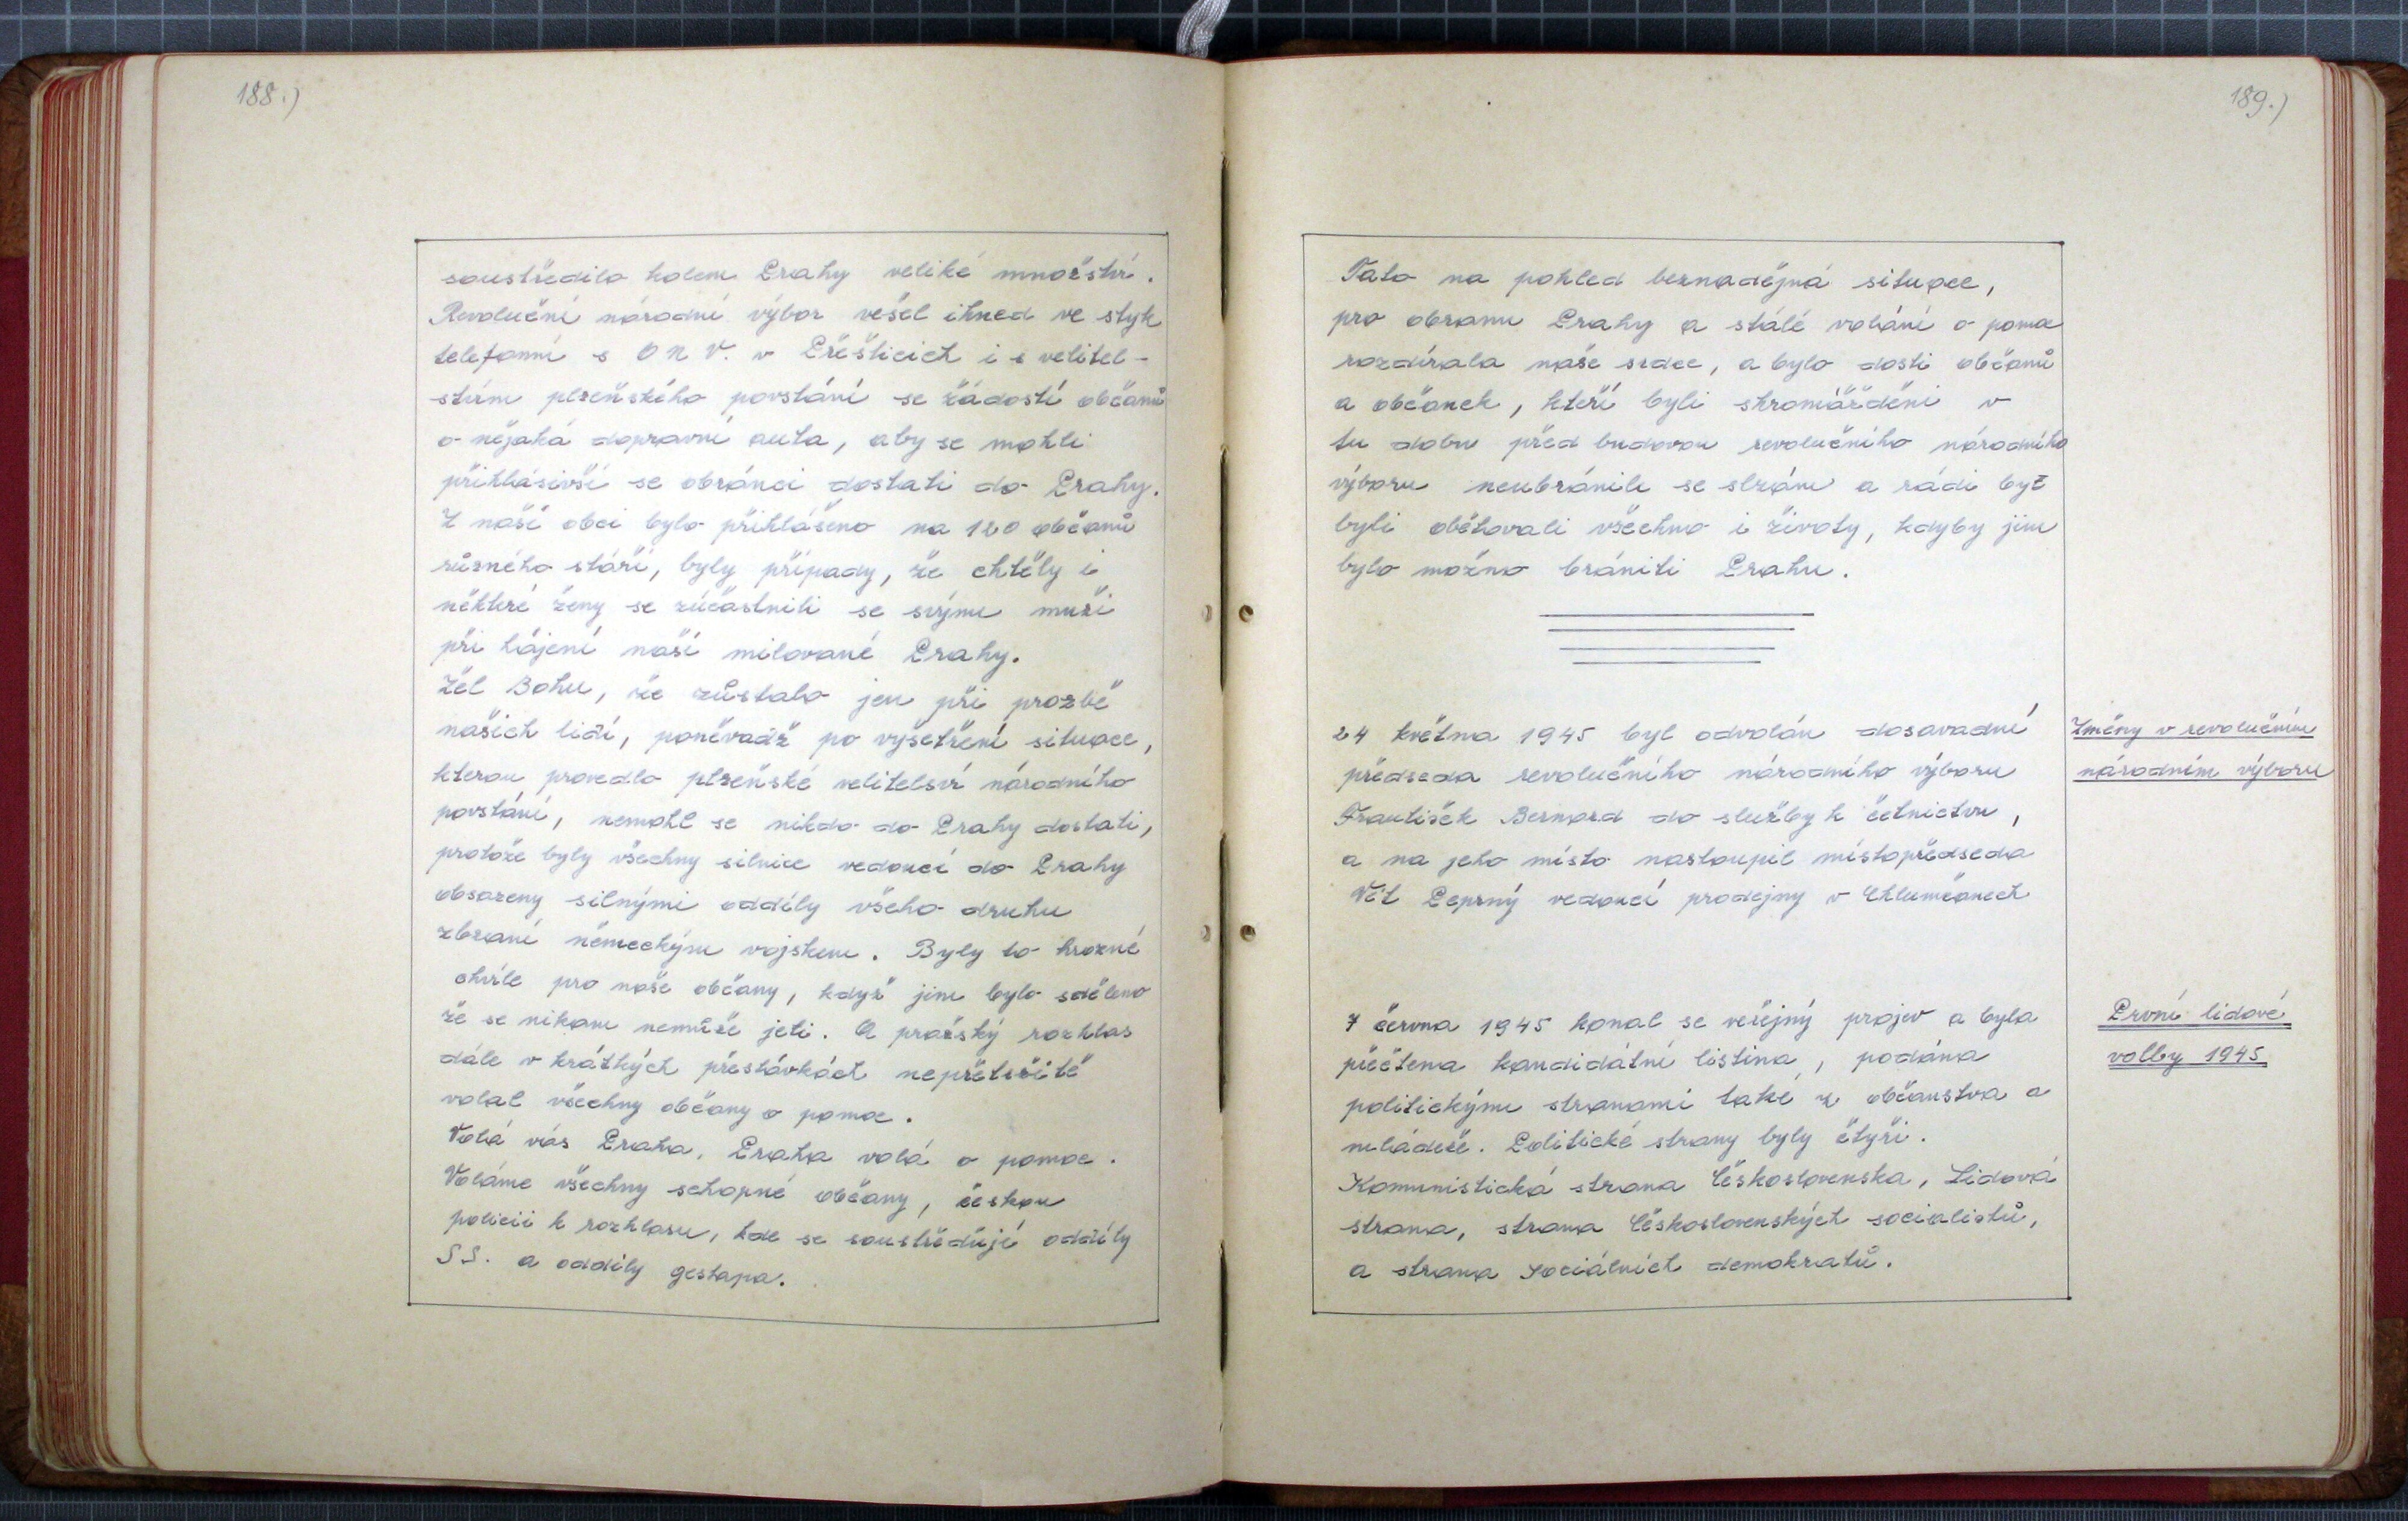 188.)
soustředilo kolem Prahy veliké množství.
Revoluční národní výbor vešel ihned ve styk
telefonní s O N V. v Přešticích i s velitel-
stvím plzeňského povstání se žádostí občanů
o nějaká dopravní auta, aby se mohli
přihlásivší se obránci dostati do Prahy.
Z naší obci bylo přihlášeno na 120 občanů
různého stáří, byly případy, že chtěly i
některé ženy se zúčastnili se svým muži
při hájení naší milované Prahy.
Žel Bohu, že zůstalo jen při prozbě
našich lidí, poněvadž po vyšetření situace,
kterou provedlo plzeňské velitelsví národního
povstání, nemohl se nikdo do Prahy dostati,
protože byly všechny silnice vedoucí do Prahy
obsazeny silnými oddíly všeho druhu
zbraní německým vojskem. Byly to hrozné
chvíle pro naše občany, když jim bylo sděleno
že se nikam nemůže jeti. A pražský rozhlas
dále v krátkých přestávkách nepřetržitě
volal všechny občany o pomoc.
Volá vás Praha, Praha volá o pomoc.
Voláme všechny schopné občany, českou
policii k rozhlasu, kde se soustřeďují oddíly
S S. a oddíly gestapa.
189.)
Tato na pohled beznadějná situace,
pro obranu Prahy a stálé volání o pomoc
rozdírala naše srdce, a bylo dosti občanů
a občanek, kteří byli shromážděni v
tu dobu před budovou revolučního národního
výboru neubránili se slzám a rádi byť
byli obětovali všechno i životy, kdyby jim
bylo možno brániti Prahu.
24 května 1945 byl odvolán dosavadní
předseda revolučního národního výboru
František Bernard do služby k četnictvu,
a na jeho místo nastoupil místopředseda
Vít Peprný vedoucí prodejny v Chlumčanech
Změny v revolučním
národním výboru
7 června 1945 konal se veřejný projev a byla
přečtena kandidátní listina, podána
politickými stranami také z občanstva a
mládeže. Politické strany byly čtyři.
Komunistická strana Československa, Lidová
strana, strana Československých socialistů,
a strana sociálních demokratů.
První lidové
volby 1945